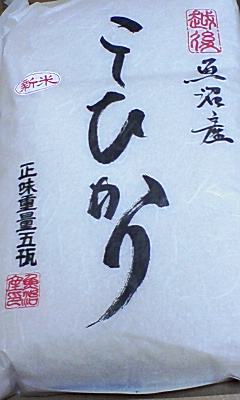 越後
魚沼産
こしひかり
新米
正味重量五瓩
魚沼
産